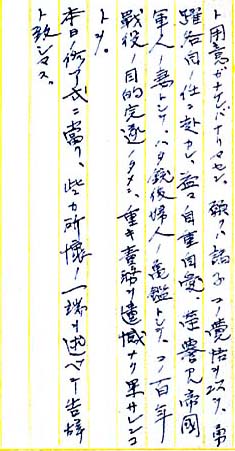 ト用意ガナケレバナリマセン、願クハ諸子コノ覚悟ヲ以ツテ、勇
躍各同ノ任ニ赴カレ、益々自重自愛、栄誉アル帝國
軍人ノ妻トシテ、ハタ銃後婦人ノ亀鑑トシテ、コノ百年
戦役ノ目的完遂ノタメ、重キ責務ヲ遺憾ナク果サレンコ
トヲ。
本日ノ修了式ニ當リ、些カ所懐ノ一端ヲ述ベテ告辞
ト致シマス。